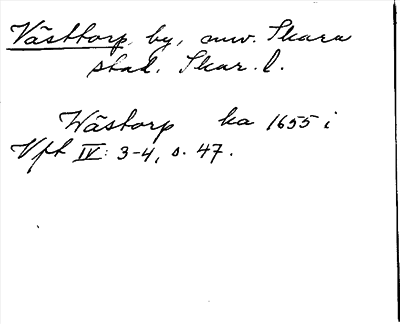 Västtorp, by, nw. Skara
stad, Skar. l.
Wästorp ka 1655 i
Vft IV: 3-4, s. 47.